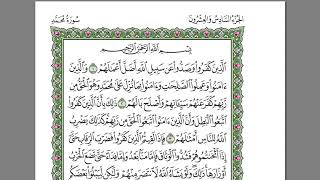 الجزء السادس والعشرون
سورة محمد
بسم الله الرحمن الرحيم
الَّذِينَ كَفَرُوا وَصَدُّوا عَن سَبِيلِ اللَّهِ أَضَلَّ أَعْمَالَهُمْ ۝١ وَالَّذِينَ
ءَامَنُوا وَعَمِلُوا الصَّالِحَاتِ وَءَامَنُوا بِمَا نُزِّلَ عَلَى مُحَمَّدٍ وَهُوَ الْحَقُّ مِن
رَّبِّهِمْ كَفَّرَ عَنْهُمْ سَيِّئَاتِهِمْ وَأَصْلَحَ بَالَهُمْ ۝٢ ذَلِكَ بِأَنَّ الَّذِينَ كَفَرُوا
اتَّبَعُوا الْبَاطِلَ وَأَنَّ الَّذِينَ ءَامَنُوا اتَّبَعُوا الْحَقَّ مِن رَّبِّهِمْ كَذَلِكَ يَضْرِبُ
اللَّهُ لِلنَّاسِ أَمْثَالَهُمْ ۝٣ فَإِذَا لَقِيتُمُ الَّذِينَ كَفَرُوا فَضَرْبَ الرِّقَابِ حَتَّى
إِذَا أَثْخَنتُمُوهُمْ فَشُدُّوا الْوَثَاقَ فَإِمَّا مَنًّا بَعْدُ وَإِمَّا فِدَاءً حَتَّى تَضَعَ الْحَرْبُ
أَوْزَارَهَا ذَلِكَ وَلَوْ يَشَاءُ اللَّهُ لَانتَصَرَ مِنْهُمْ وَلَكِن لِّيَبْلُوَا بَعْضَكُم